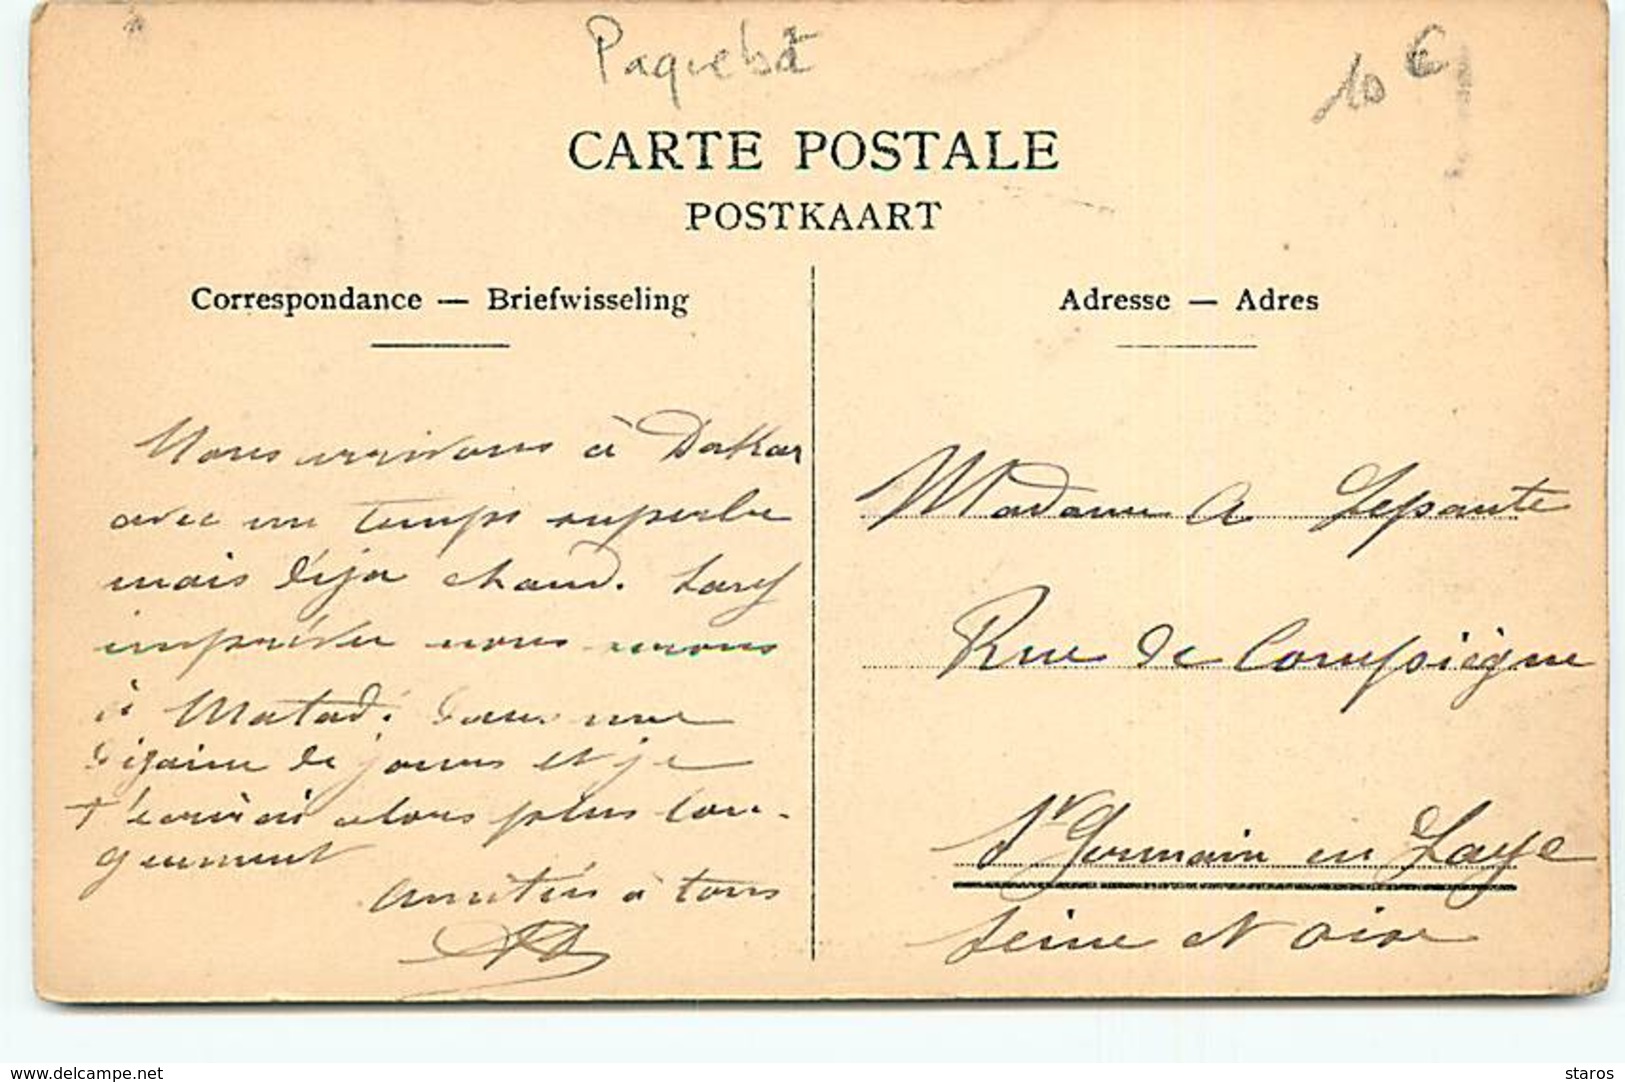 Paquebot
10 €
CARTE POSTALE
POSTKAART
Correspondance — Briefwisseling
Adresse — Adres
Nous arrivons à Dakar
avec un temps superbe
mais déja chaud. Sauf
imprévu nous serons
à Matadi dans une
dizaine de jours et je
t'écrirai alors plus lon-
guement
Amitiés à tous
Madame A Lepante
Rue de Compiègne
St Germain en Laye
Seine et Oise
www.delcampe.net
staros